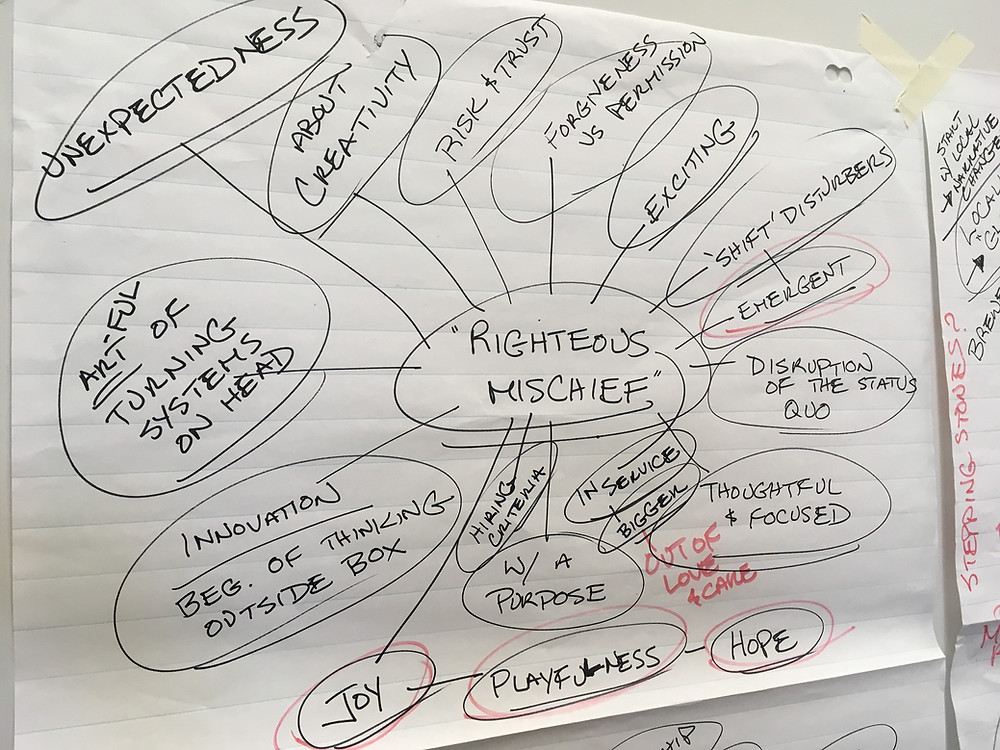 UNEXPECTEDNESS
ABOUT
CREATIVITY
RISK & TRUST
FORGIVENESS
VS PERMISSION
EXCITING
'SHIFT' DISTURBERS
EMERGENT
"RIGHTEOUS
MISCHIEF"
ART-FUL
OF
TURNING
SYSTEMS
ON HEAD
DISRUPTION
OF THE STATUS
QUO
INNOVATION
BEG. OF THINKING
OUTSIDE BOX
HIRING
CRITERIA
IN SERVICE
BIGGER
THOUGHTFUL
& FOCUSED
W/ A
PURPOSE
OUT OF
LOVE
& CARE
JOY
PLAYFULNESS
HOPE
START
W/ LOCAL
NARRATIVE
CHANGE
LOCAL
STEPPING STONES?